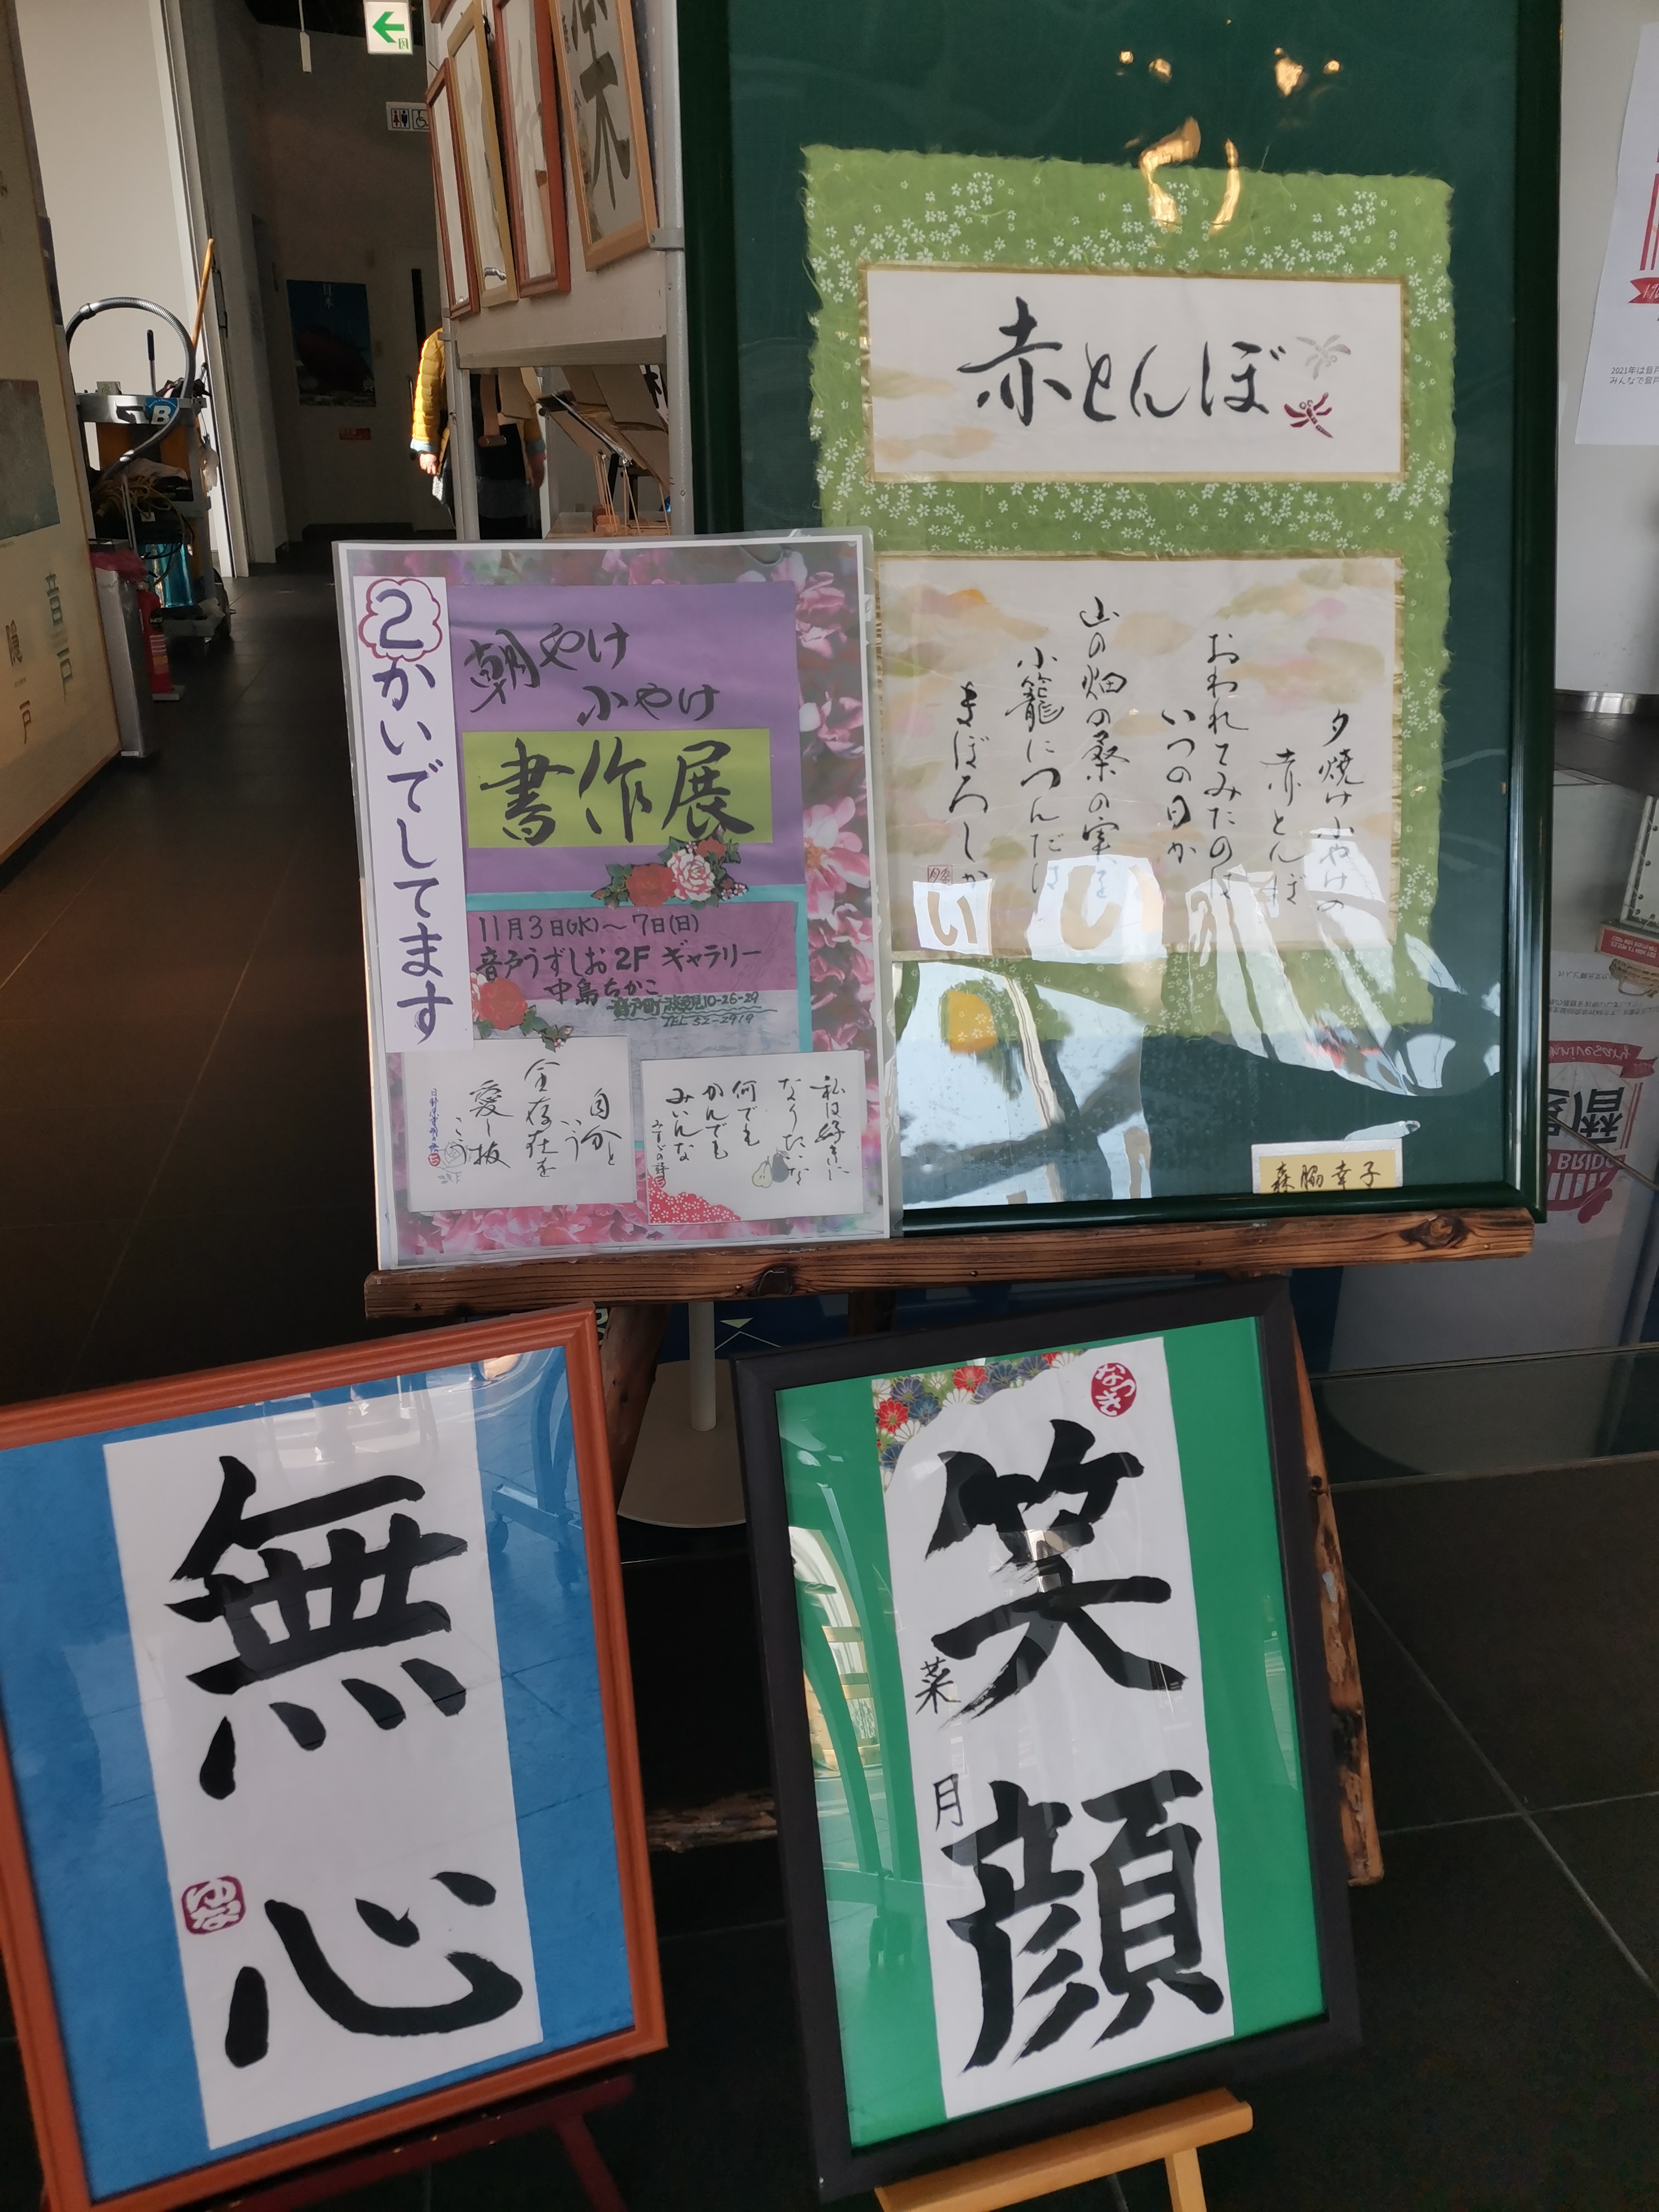 赤とんぼ
夕焼け小やけの
赤とんぼ
おわれてみたのは
いつの日か
山の畑の桑の実を
小籠につんだは
まぼろしか
森脇幸子
2かいでしてます
朝やけ
小やけ
書作展
11月3日(水)～7日(日)
音戸うずしお2F ギャラリー
中島ちかこ
10-26-29
TEL 52-2919
自分と
いう
全存在を
愛し抜
こう
私は好きに
なりたいな
何でも
かんでも
みいんな
みすゞの詩
無心
ゆな
なつき
笑顔
菜月
2021年は音戸
みんなで音戸
音戸
隠